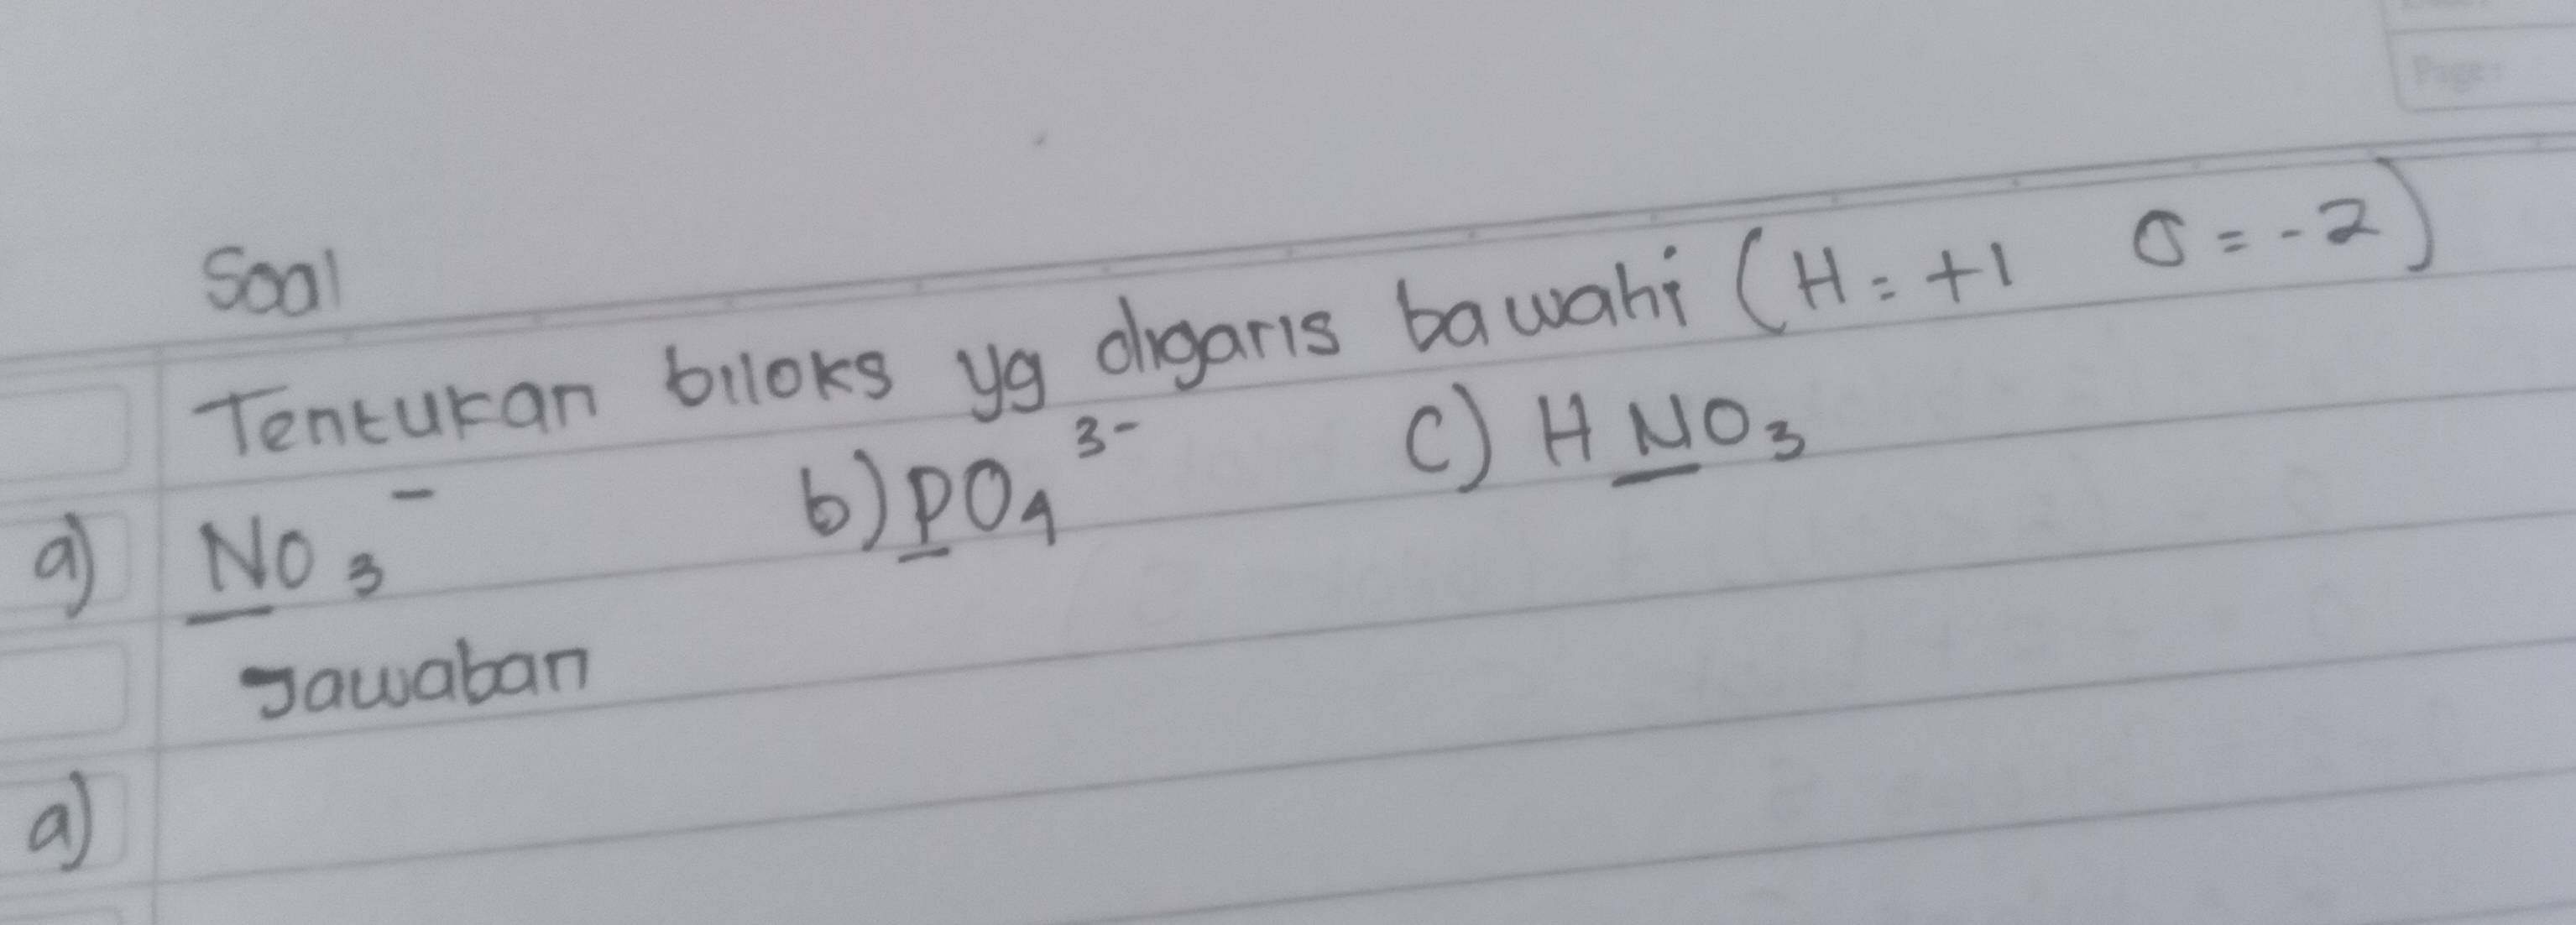 Page:
Soal
Tentukan biloks yg digaris bawahi (H = +1 O = -2)
a) NO₃⁻ b) PO₄³⁻ c) HNO₃
Jawaban
a)